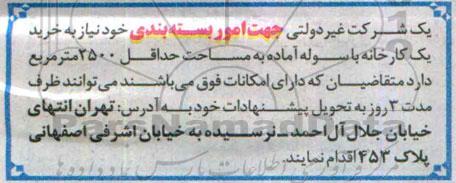 یک شرکت غیر دولتی جهت امور بسته بندی خود نیاز به خرید
یک کارخانه با سوله آماده به مساحت حداقل ۲۵۰۰ متر مربع
دارد متقاضیان که دارای امکانات فوق می باشند می توانند ظرف
مدت ۳ روز به تحویل پیشنهادات خود به آدرس: تهران انتهای
خیابان جلال آل احمد ـ نرسیده به خیابان اشرفی اصفهانی
پلاک ۴۵۳ اقدام نمایند.